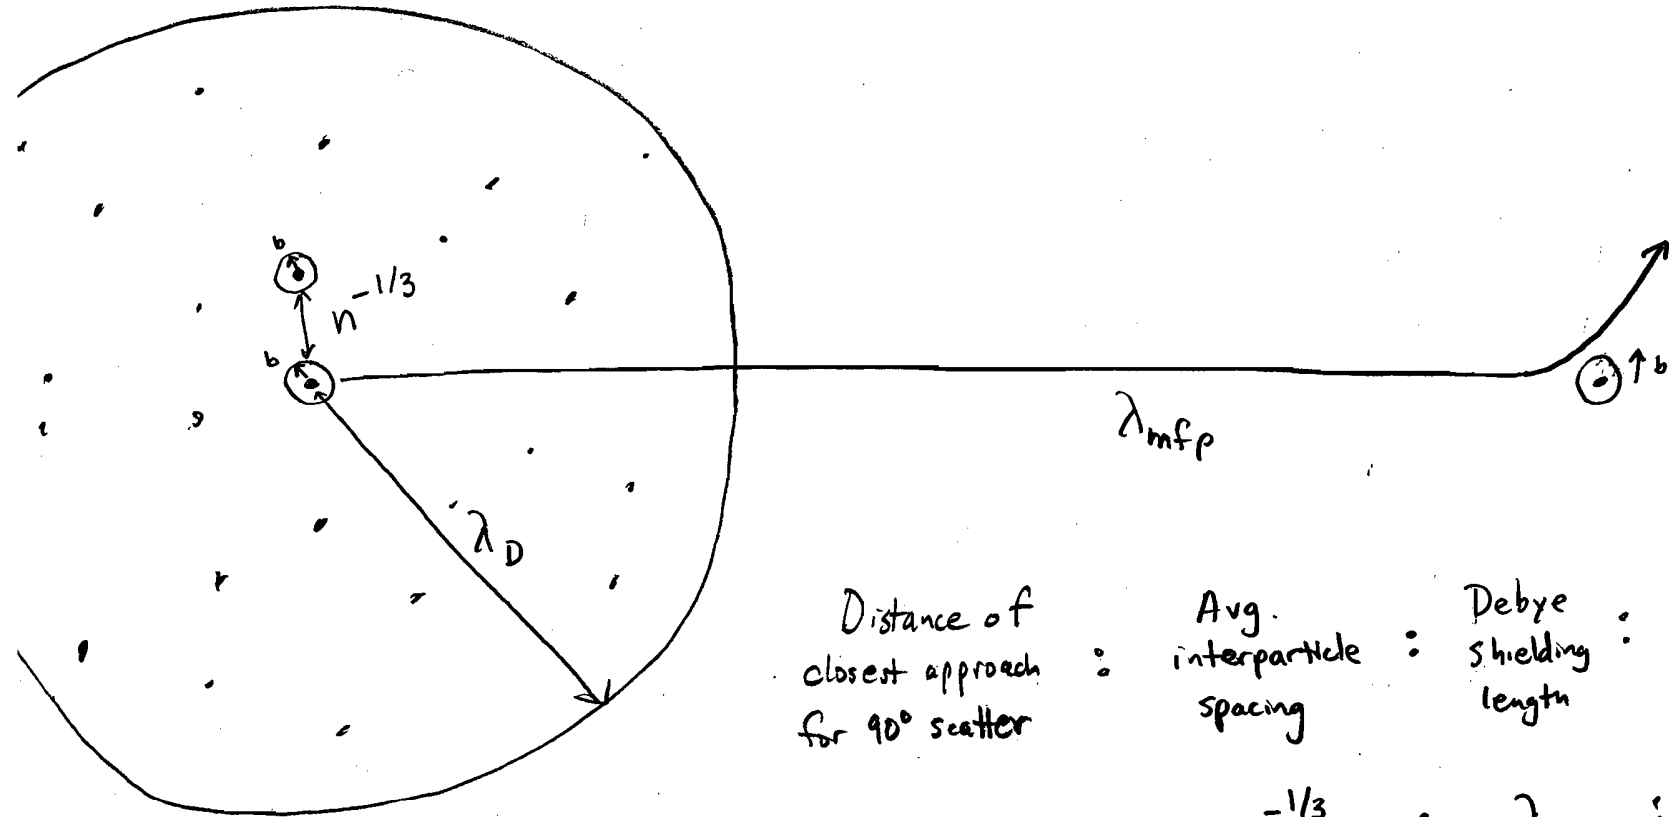 b
n^{-1/3}
b
b
λ_mfp
λ_D
Distance of closest approach for 90° scatter : Avg. interparticle spacing : Debye shielding length :
n^{-1/3} : λ :